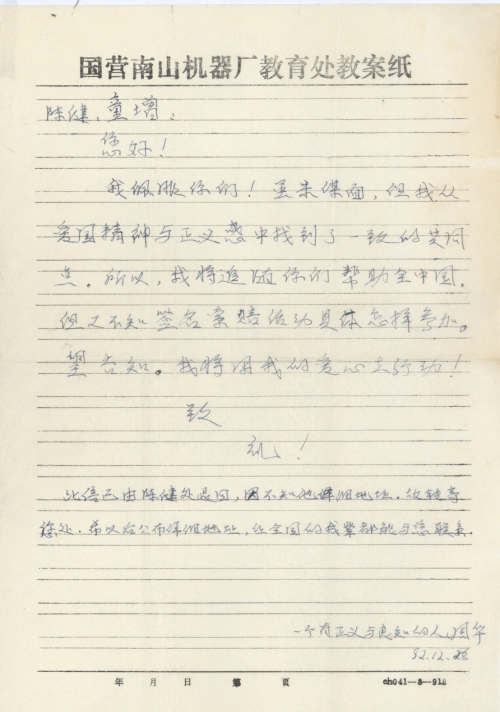 国营南山机器厂教育处教案纸
陈健、童增：
您好！
我佩服你们！虽未谋面，但我从
爱国精神与正义感中找到了一致的共同
点。所以，我将追随你们帮助全中国。
但又不知签名索赔活动具体怎样参加。
望告知。我将用我的爱心去行动！
致
礼！
此信已由陈健处退回，因不知他详细地址，故转寄
您处。希以后公布详细地址，让全国的我辈都能与您联系。
一个有正义与良知的人：国华
92.12.
年 月 日 第 页 ch041—8—918